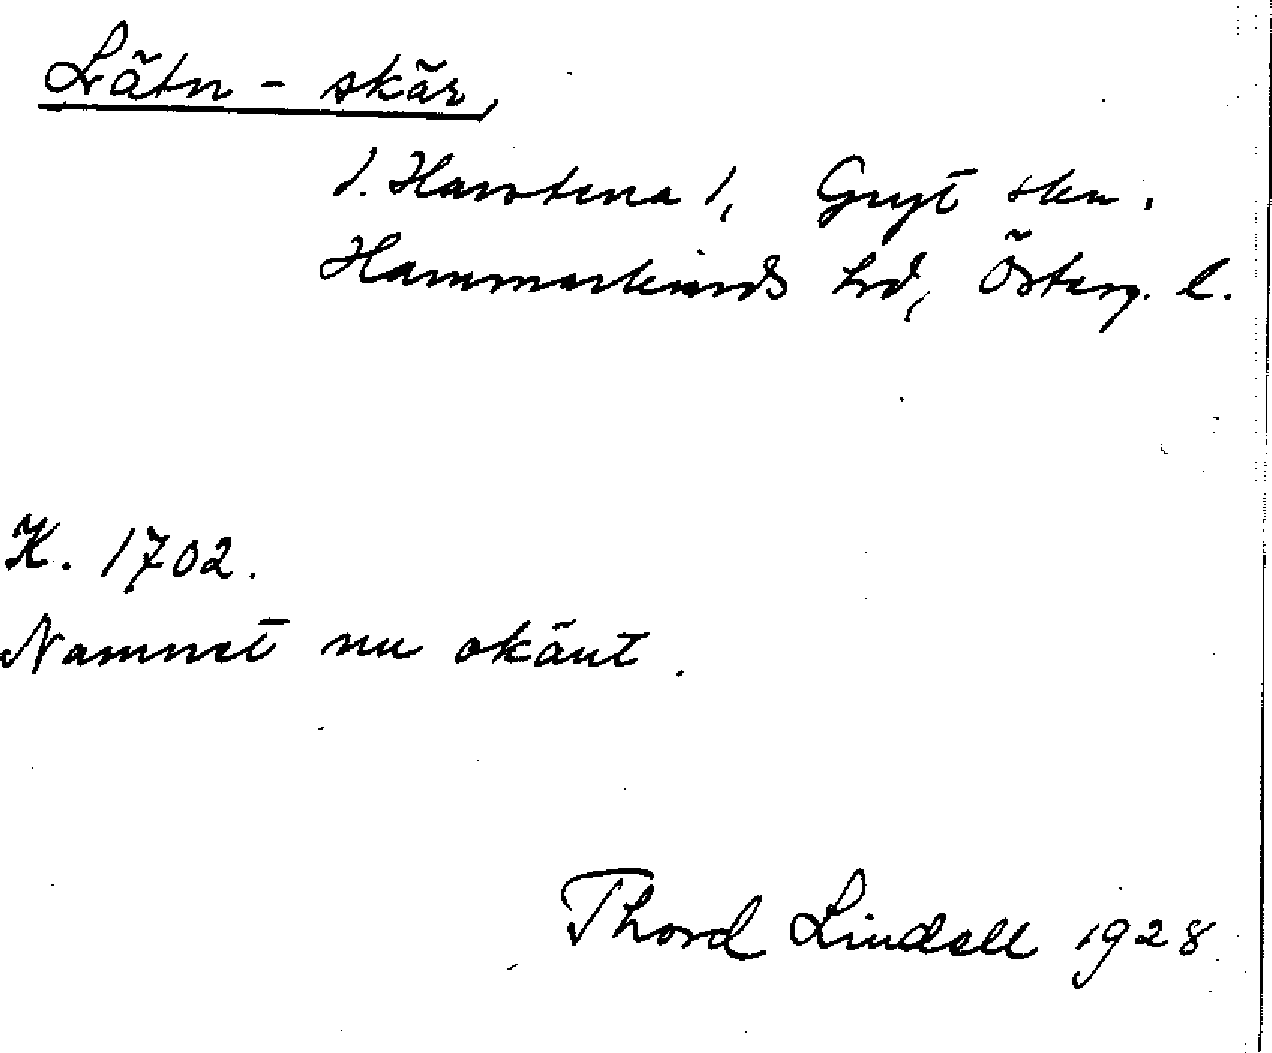 Lätn - skär,
1. Harstena 1, Gryt skn.
Hammarkinds hd, Österg. l.
K. 1702.
Namnet nu okänt.
Thord Lindell 1928.